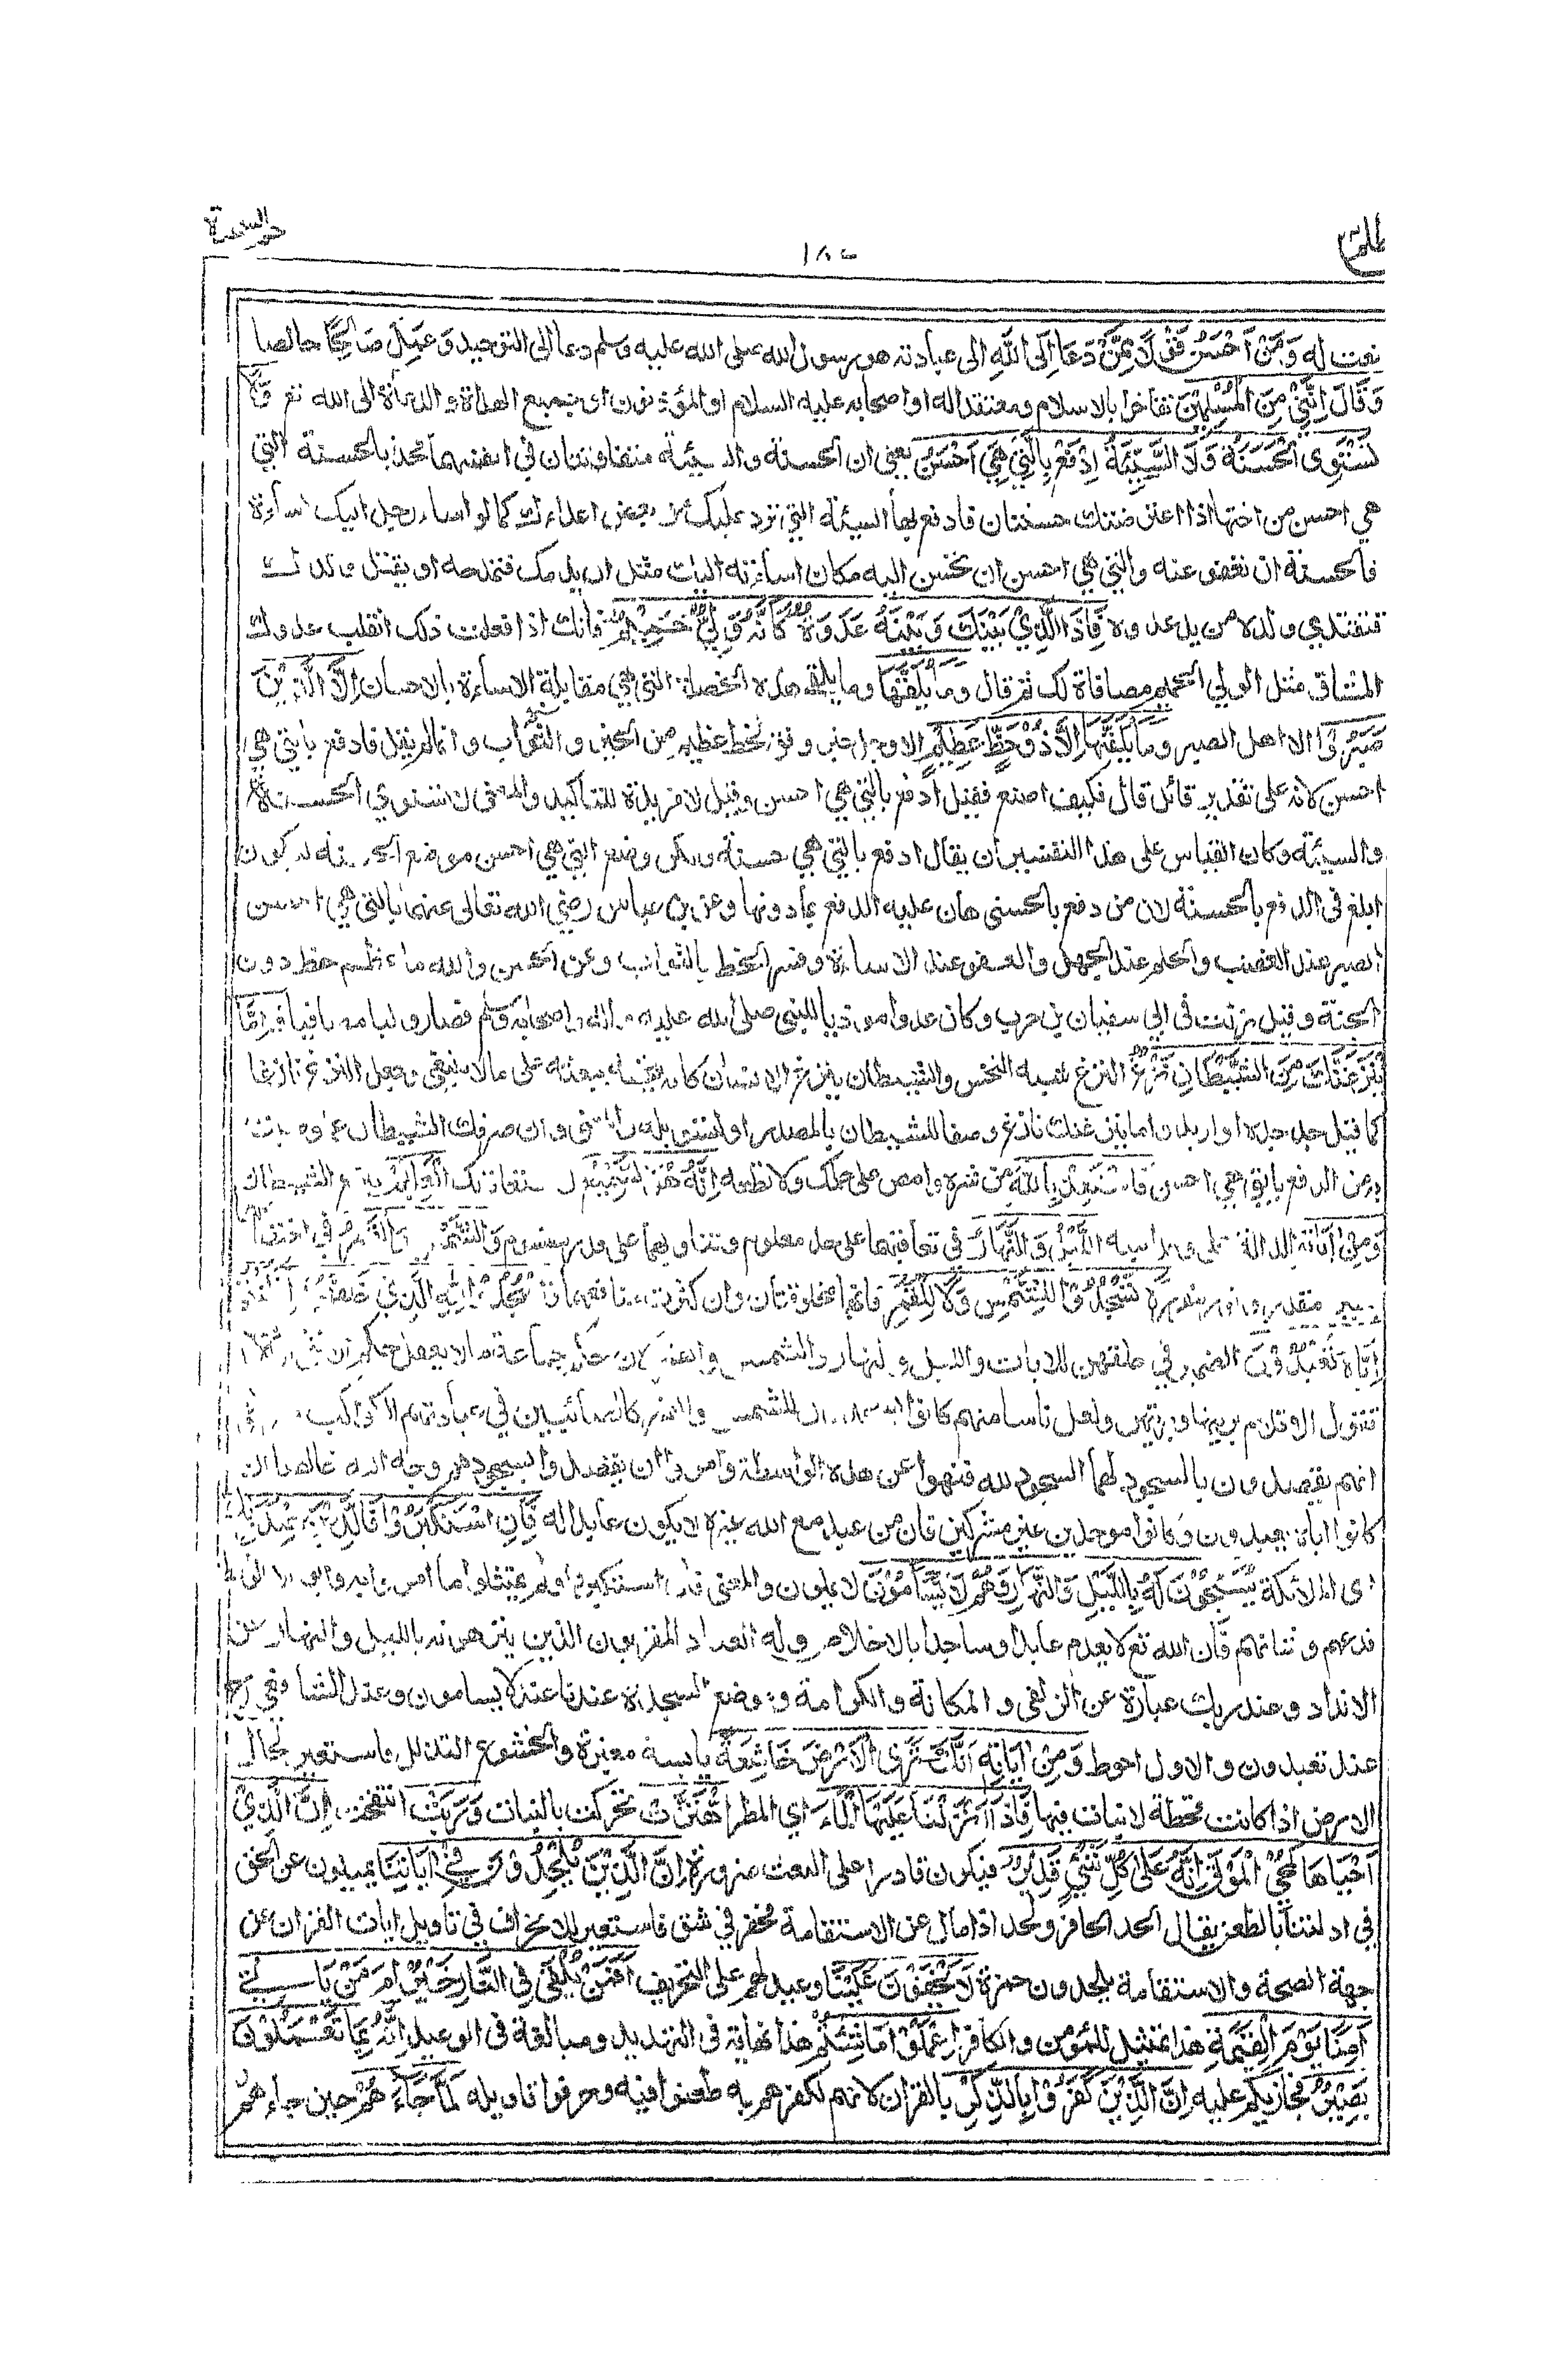 حم السجدة
١٨٥
نعت له وَمَنْ أَحْسَنُ قَوْلًا مِمَّنْ دَعَا إِلَى اللَّهِ الى عبادته هو رسول الله صلى الله عليه وسلم دعا الى التوحيد وَعَمِلَ صَالِحًا خالصا
وَقَالَ إِنَّنِي مِنَ الْمُسْلِمِينَ تفاخرا بالاسلام ومعتقدا له او اصحابه عليه السلام او المؤذنون او جميع الهداة والدعاة الى الله
تَسْتَوِي الْحَسَنَةُ وَلَا السَّيِّئَةُ ادْفَعْ بِالَّتِي هِيَ أَحْسَنُ يعني ان الحسنة والسيئة متفاوتتان في انفسهما فخذ بالحسنة التي
هي احسن من اختها اذا اعترضتك حسنتان فادفع بها السيئة التي ترد عليك من بعض اعدائك كما لو اساء رجل اليك اساءة
فالحسنة ان تعفو عنه والتي هي احسن ان تحسن اليه مكان اساءته اليك مثل ان يذمك فتمدحه او يقتل ولدك
فتفتدي ولده من يد عدوه فَإِذَا الَّذِي بَيْنَكَ وَبَيْنَهُ عَدَاوَةٌ كَأَنَّهُ وَلِيٌّ حَمِيمٌ فانك اذا فعلت ذلك انقلب عدوك
المشاق مثل الولي الحميم مصافاة لك ثم قال وَمَا يُلَقَّاهَا وما يلقى هذه الخصلة التي هي مقابلة الاساءة بالاحسان إِلَّا الَّذِينَ
صَبَرُوا الا اهل الصبر وَمَا يُلَقَّاهَا إِلَّا ذُو حَظٍّ عَظِيمٍ الا رجل خير وفق لحظ عظيم من الخير والثواب وانما لم يقل فادفع بالتي هي
احسن لانه على تقدير قائل قال فكيف اصنع فقيل ادفع بالتي هي احسن وقيل لا مزيدة للتاكيد والمعنى لا تستوي الحسنة
والسيئة وكان القياس على هذا التفسير ان يقال ادفع بالتي هي حسنة ولكن وضع التي هي احسن موضع الحسنة ليكون
ابلغ في الدفع بالحسنة لان من دفع بالحسنى هان عليه الدفع بما دونها وعن ابن عباس رضي الله تعالى عنهما بالتي هي احسن
الصبر عند الغضب والحلم عند الجهل والعفو عند الاساءة وفسر الحظ بالثواب وعن الحسن والله ما عظم حظ دون
الجنة وقيل نزلت في ابي سفيان بن حرب وكان عدوا موذيا للنبي صلى الله عليه وآله واصحابه وسلم فصار وليا مصافيا وَإِمَّا
يَنْزَغَنَّكَ مِنَ الشَّيْطَانِ نَزْغٌ النزغ شبه النخس والشيطان ينزغ الانسان كانه ينخسه يبعثه على ما لا ينبغي وجعل النزغ نازغا
كما قيل جد جده او اريد واما ينزغنك نازغ وصفا للشيطان بالمصدر او لتسويله والمعنى وان صرفك الشيطان عما وصيت
به من الدفع بالتي هي احسن فَاسْتَعِذْ بِاللَّهِ من شره وامض على حلمك ولا تطعه إِنَّهُ هُوَ السَّمِيعُ لاستعاذتك الْعَلِيمُ بنزغ الشيطان
وَمِنْ آيَاتِهِ الدالة على وحدانيته اللَّيْلُ وَالنَّهَارُ في تعاقبهما على حد معلوم وتناوبهما على قدر مقسوم وَالشَّمْسُ وَالْقَمَرُ في
لَا تَسْجُدُوا لِلشَّمْسِ وَلَا لِلْقَمَرِ فانهما مخلوقتان وان كثرت منافعهما وَاسْجُدُوا لِلَّهِ الَّذِي خَلَقَهُنَّ إِنْ كُنْتُمْ
إِيَّاهُ تَعْبُدُونَ الضمير في خلقهن للايات والليل والنهار والشمس والقمر لان حكم جماعة ما لا يعقل حكم الانثى
تقول الاقلام بريتها وبريتهن ولعل ناسا منهم كانوا يسجدون للشمس والقمر كالصائبين في عبادتهم الكواكب
انهم يقصدون بالسجود لهما السجود لله فنهوا عن هذه الواسطة وامروا ان يقصدوا بسجودهم وجه الله خالصا ان
كانوا اياه يعبدون وكانوا موحدين غير مشركين فان من عبد مع الله غيره لا يكون عابدا له فَإِنِ اسْتَكْبَرُوا فَالَّذِينَ عِنْدَ رَبِّكَ
اى الملائكة يُسَبِّحُونَ لَهُ بِاللَّيْلِ وَالنَّهَارِ وَهُمْ لَا يَسْأَمُونَ لا يملون والمعنى فان استكبروا ولم يمتثلوا ما امروا به وابوا الا
فدعهم وشانهم فان الله تع لا يعدم عابدا وساجدا بالاخلاص وله العباد المقربون الذين ينزهونه بالليل والنهار عن
الانداد وعند ربك عبارة عن الزلفى والمكانة والكرامة وموضع السجدة عندنا عند لا يسامون وعند الشافعي رح
عند تعبدون والاول احوط وَمِنْ آيَاتِهِ أَنَّكَ تَرَى الْأَرْضَ خَاشِعَةً يابسة مغبرة والخشوع التذلل فاستعير لحال
الارض اذا كانت قحطة لا نبات فيها فَإِذَا أَنْزَلْنَا عَلَيْهَا الْمَاءَ اي المطر اهْتَزَّتْ تحركت بالنبات وَرَبَتْ انتفخت إِنَّ الَّذِي
أَحْيَاهَا لَمُحْيِ الْمَوْتَى إِنَّهُ عَلَى كُلِّ شَيْءٍ قَدِيرٌ فيكون قادرا على البعث ضرورة إِنَّ الَّذِينَ يُلْحِدُونَ فِي آيَاتِنَا يميلون عن الحق
في ادلتنا بالطعن يقال الحد الحافر ولحد اذا مال عن الاستقامة فحفر في شق فاستعير للانحراف في تاويل ايات القران عن
جهة الصحة والاستقامة يلحدون حمزة لَا يَخْفَوْنَ عَلَيْنَا وعيد لهم على التحريف أَفَمَنْ يُلْقَى فِي النَّارِ خَيْرٌ أَمْ مَنْ يَأْتِي
آمِنًا يَوْمَ الْقِيَمَةِ هذا تمثيل للمؤمن والكافر اعْمَلُوا مَا شِئْتُمْ هذا نهاية في التهديد ومبالغة في الوعيد إِنَّهُ بِمَا تَعْمَلُونَ
بَصِيرٌ فيجازيكم عليه إِنَّ الَّذِينَ كَفَرُوا بِالذِّكْرِ بالقران لانهم لكفرهم به طعنوا فيه وحرفوا تاويله لَمَّا جَاءَهُمْ حين جاءهم